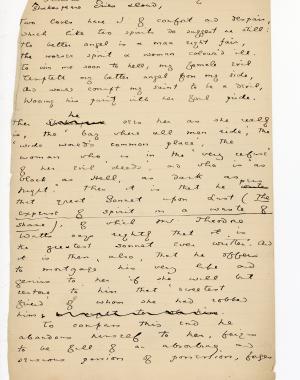 Shakespeare cries aloud,
Two loves have I of comfort and despair,
which like two spirits do suggest me still:
The better angel is a man right fair,
the worser spirit a woman colour'd ill.
To win me soon to hell, my female evil
Tempteth my better angel from my side,
And would corrupt my saint to be a devil,
Wooing his purity with her foul pride.
he
Then sees her as she really
is, the "bay where all men ride," the
wide world's common place," the
woman who is in the "very refuse"
of her evil deeds, and who is as
black as Hell, as dark as
Night." Then it is that he
that great Sonnet upon Lust (The
expense of spirit in a waste of
shame), of which Mr. Theodore
Watts says rightly that it is
the greatest sonnet ever written. And
it is then, also, that he offers
to mortgage his very life and
genius to her if she will but
restore to him that "sweetest
friend" of whom she had robbed
him.
To compass this end he
abandons himself to her, feigns
to be full of an absorbing and
sensuous passion of possession, forges